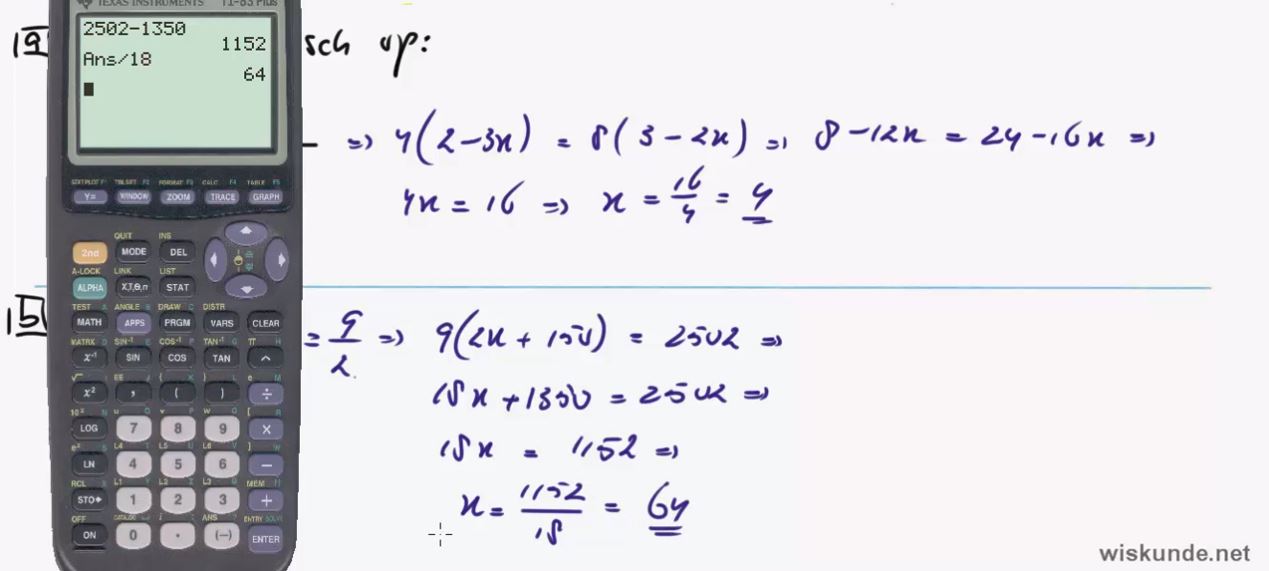 TEXAS INSTRUMENTS TI-83 Plus
2502-1350
1152
Ans/18
64
19 sch op:
⇒ 4(2-3x) = 8(3-2x) ⇒ 8-12x = 24-16x ⇒
4x = 16 ⇒ x = 16/4 = 4
15 = 9/2 ⇒ 9(2x + 150) = 2502 ⇒
18x + 1350 = 2502 ⇒
18x = 1152 ⇒
x = 1152/18 = 64
STAT PLOT F1 TBLSET F2 FORMAT F3 CALC F4 TABLE F5
Y= WINDOW ZOOM TRACE GRAPH
QUIT INS
2nd MODE DEL
A-LOCK LINK LIST
ALPHA X,T,θ,n STAT
TEST A ANGLE B DRAW C DISTR
MATH APPS PRGM VARS CLEAR
MATRX D SIN⁻¹ E COS⁻¹ F TAN⁻¹ G π H
x⁻¹ SIN COS TAN ^
x² , ( ) ÷
LOG 7 8 9 ×
LN 4 5 6 −
RCL X L1 Y L2 Z L3 θ MEM "
STO▸ 1 2 3 +
OFF CATALOG ANS ? ENTRY SOLVE
ON 0 . (−) ENTER
wiskunde.net